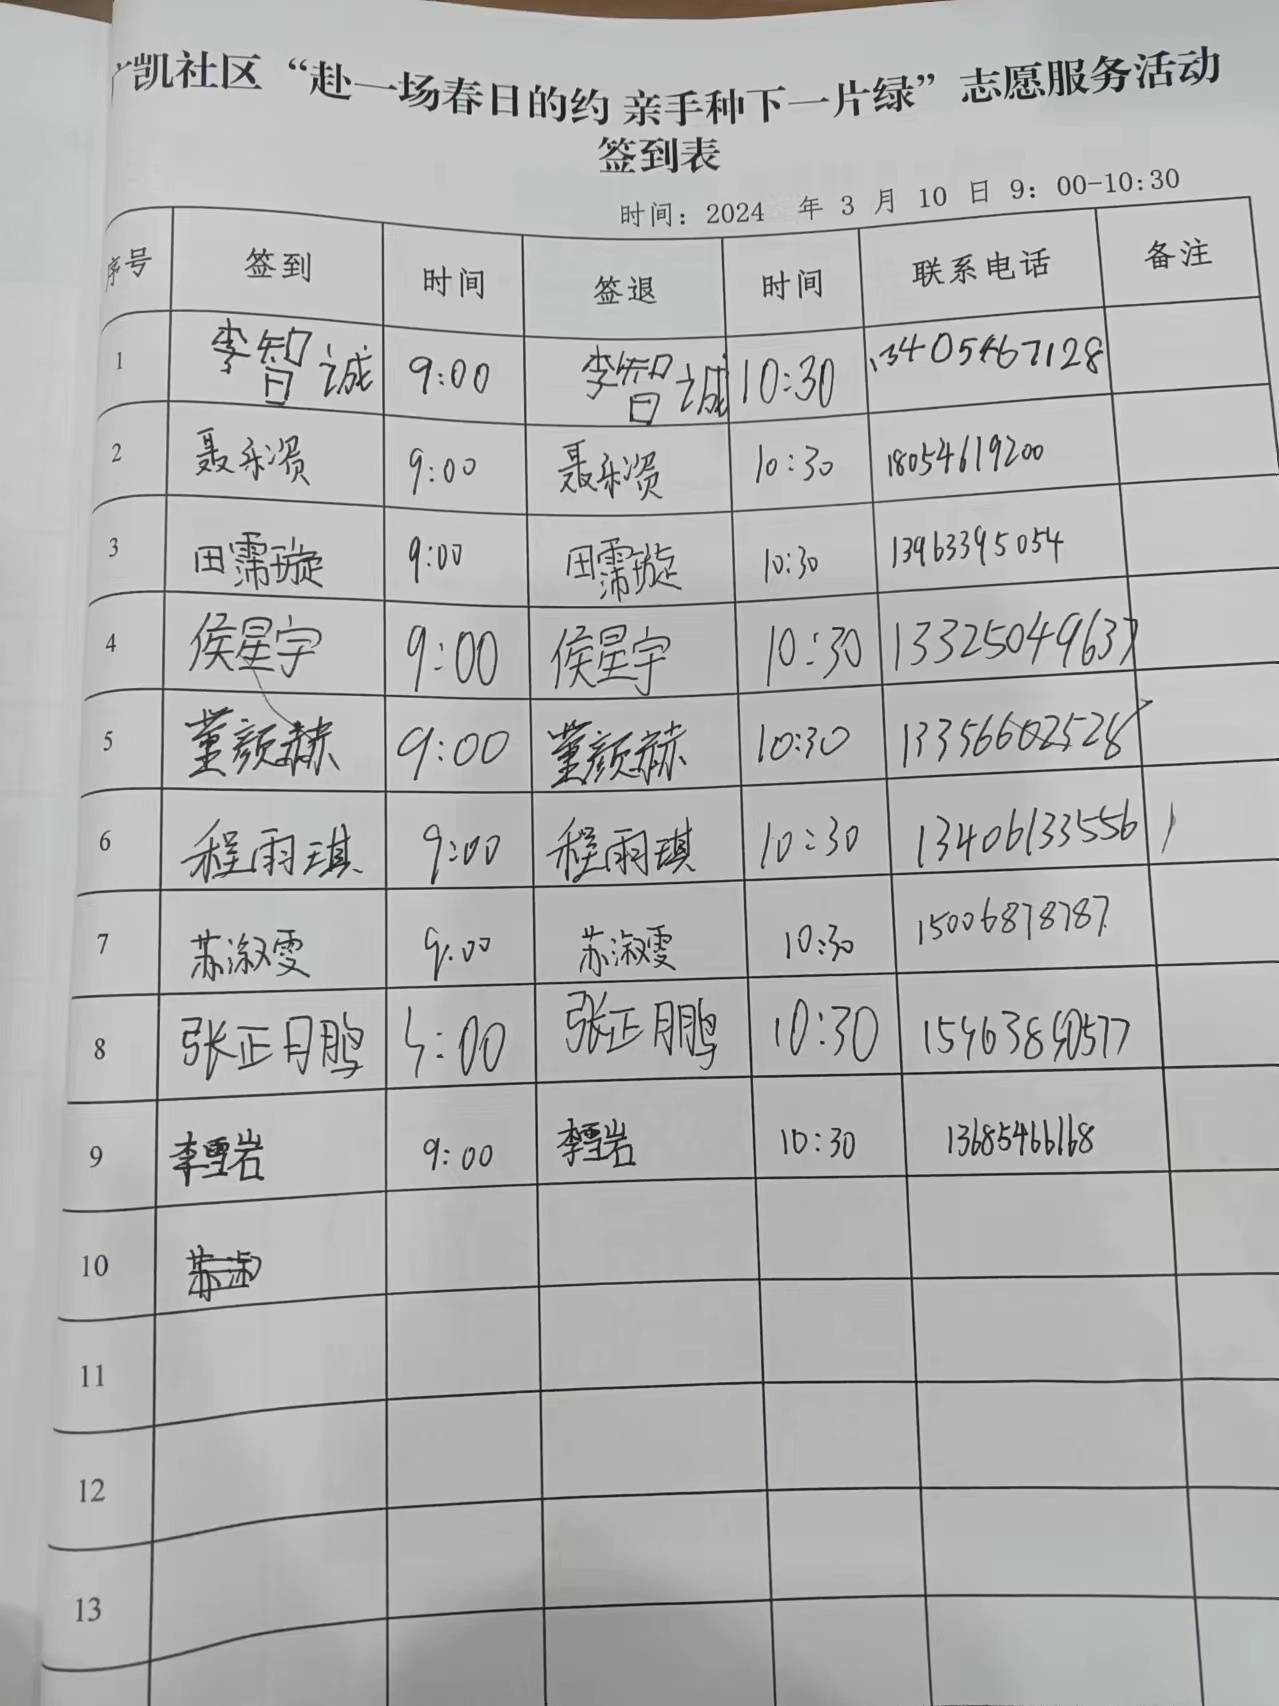 广凯社区“赴一场春日的约 亲手种下一片绿”志愿服务活动
签到表
时间：2024 年 3 月 10 日 9：00-10:30
序号 签到 时间 签退 时间 联系电话 备注
1 李智诚 9:00 李智诚 10:30 13405467128
2 聂乐资 9:00 聂乐资 10:30 18054619200
3 田霈璇 9:00 田霈璇 10:30 13963395054
4 侯星宇 9:00 侯星宇 10:30 13325049637
5 董颜赫 9:00 董颜赫 10:30 13356602528
6 程雨琪 9:00 程雨琪 10:30 13406133556
7 苏淑雯 9:00 苏淑雯 10:30 15006878787
8 张正鹏 :00 张正鹏 10:30
9 李雪岩 9:00 李雪岩 10:30 13685466168
10
11
12
13